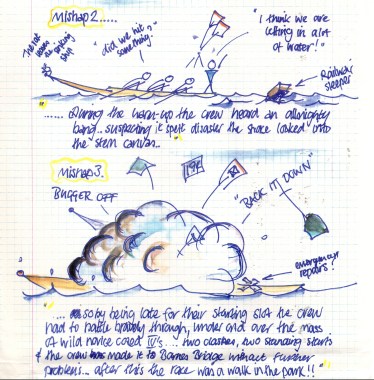 Mishap 2.....
"did we hit something?"
"I think we are letting in a lot of water!"
Railway sleeper
..... During the warm-up the crew heard an almighty
bang... suspecting it spelt disaster the stroke looked into
the stern canvas..
Mishap 3.
BUGGER OFF
194
"BACK IT DOWN"
emergency repairs?
"... so by being late for their starting slot the crew
had to battle bravely through, under and over the mass
of wild novice coxed IV's ... two clashes, two standing starts
& the crew has made it to Barnes Bridge without further
problems... after this the race was a walk in the park!!"